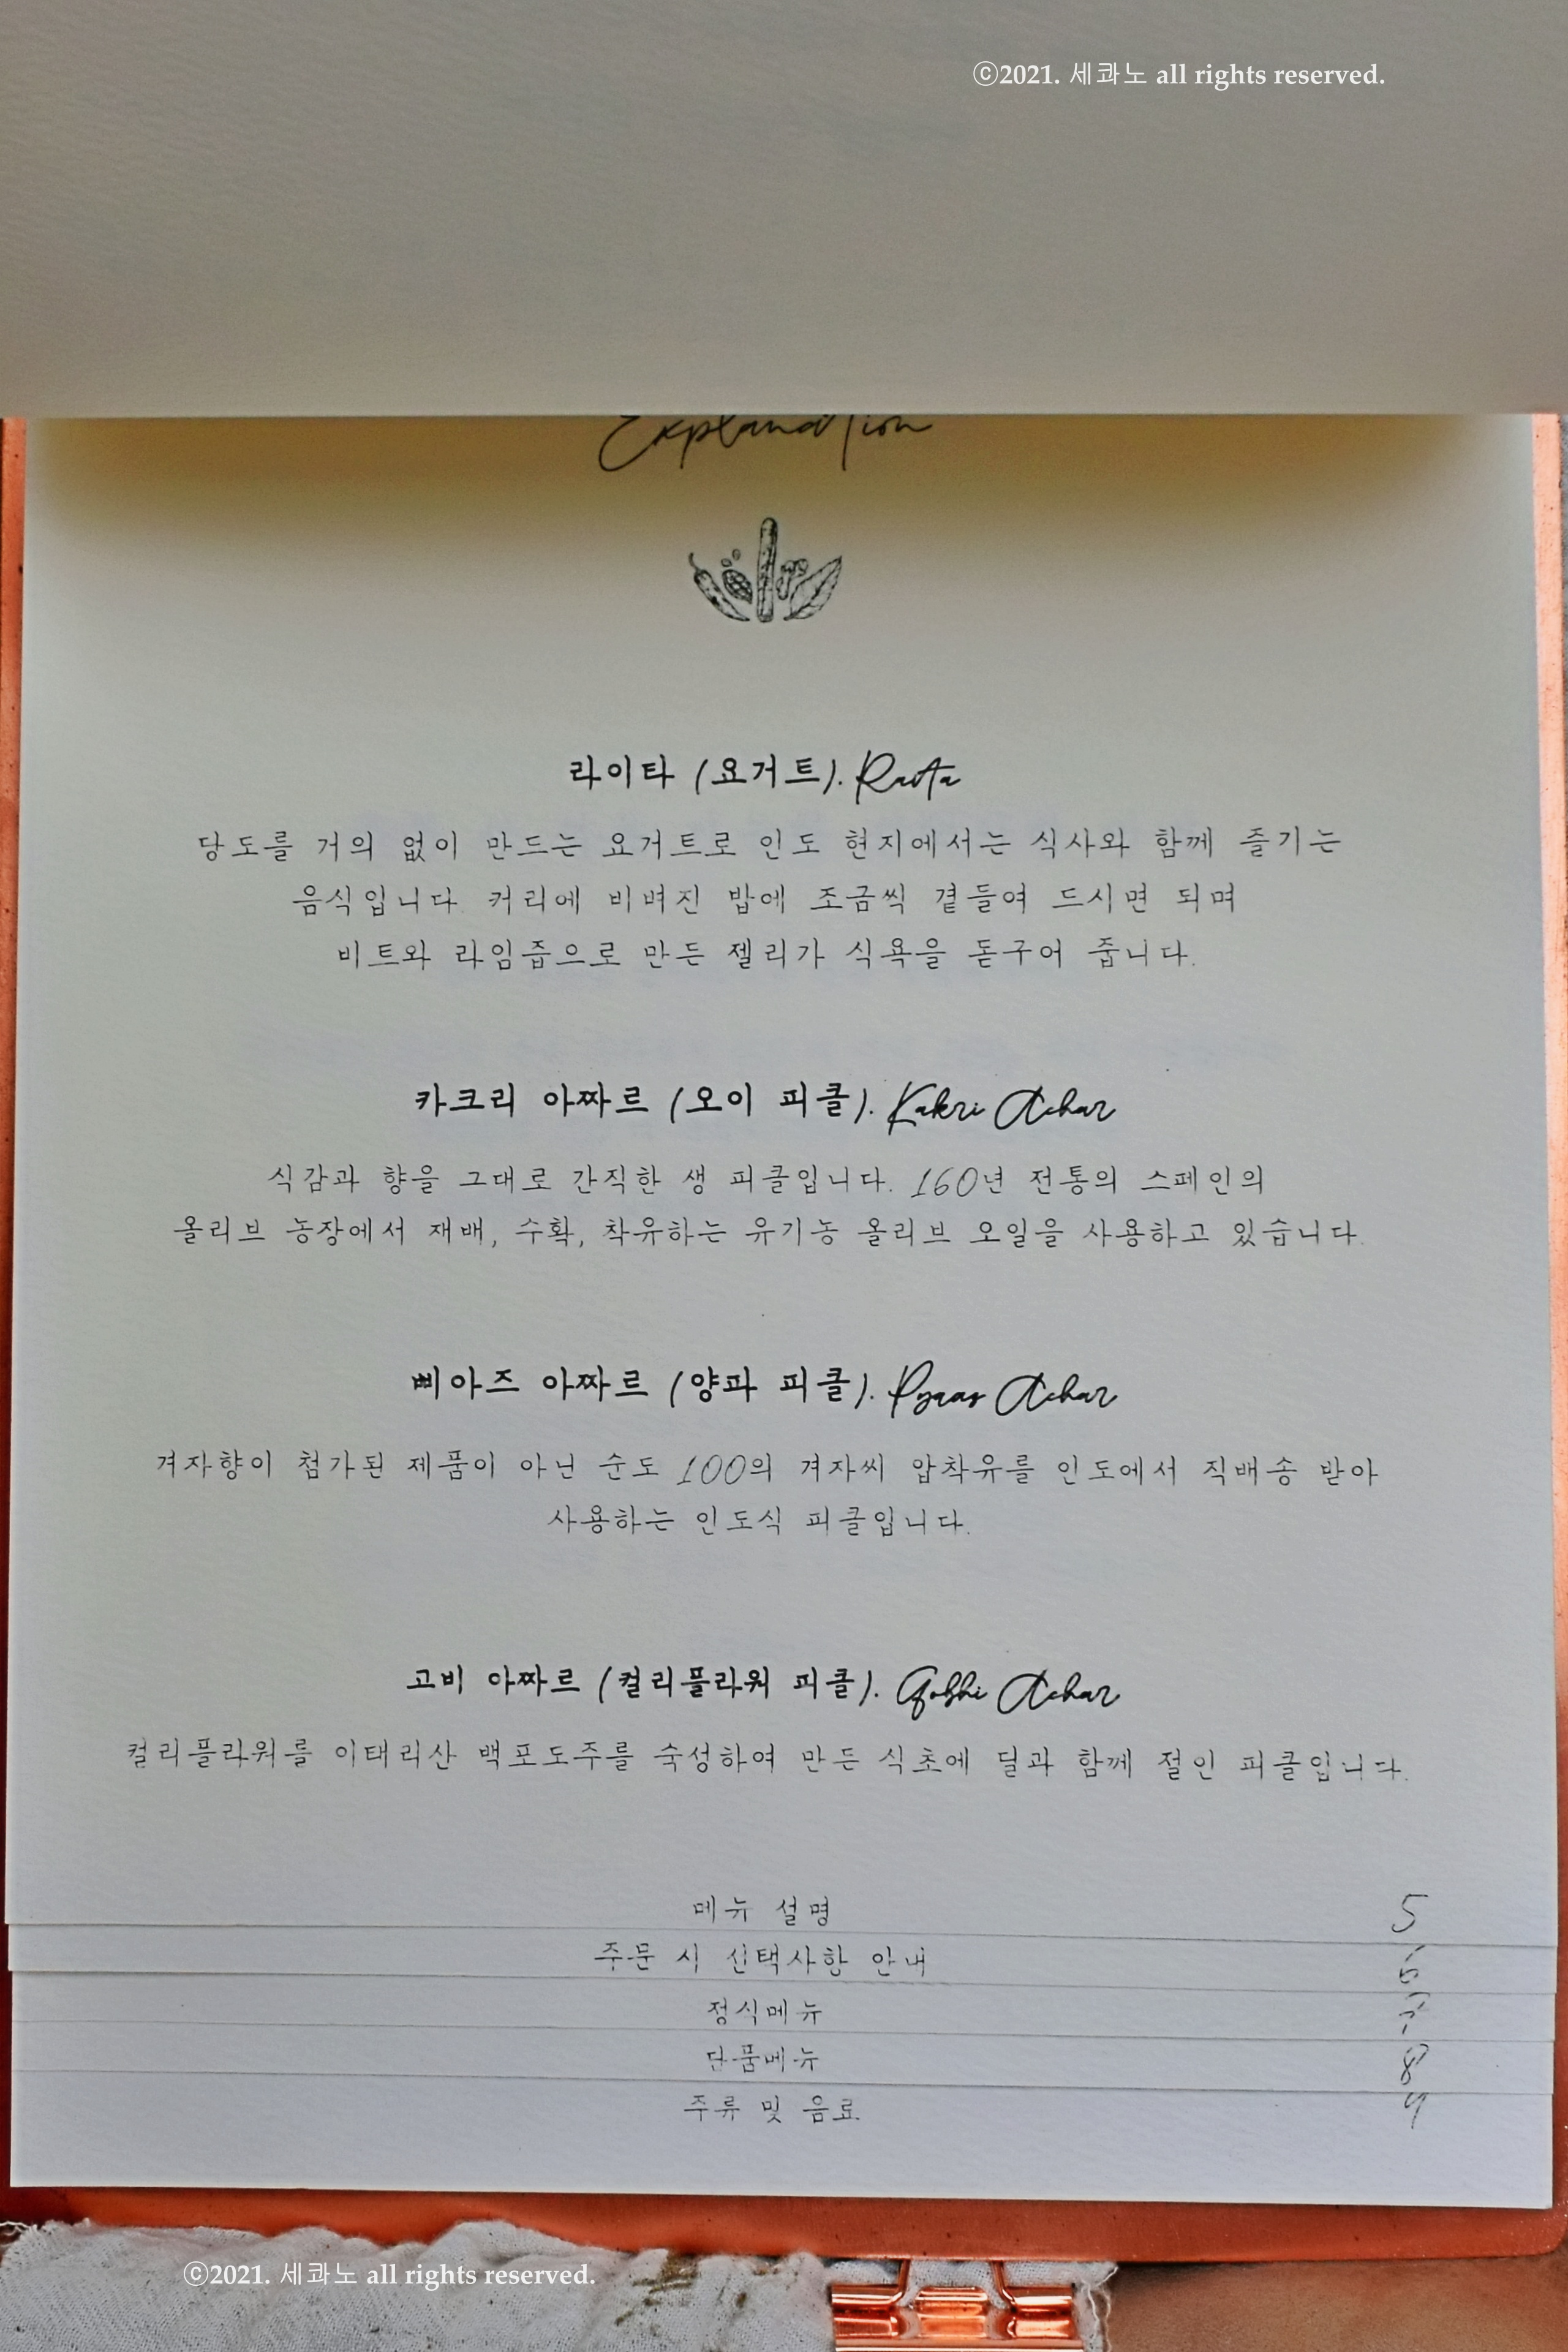 ⓒ2021. 세콰노 all rights reserved.
Explanation
라이타 (요거트). Raita
당도를 거의 없이 만드는 요거트로 인도 현지에서는 식사와 함께 즐기는
음식입니다. 커리에 비벼진 밥에 조금씩 곁들여 드시면 되며
비트와 라임즙으로 만든 젤리가 식욕을 돋구어 줍니다.
카크리 아짜르 (오이 피클). Kakri Achar
식감과 향을 그대로 간직한 생 피클입니다. 160년 전통의 스페인의
올리브 농장에서 재배, 수확, 착유하는 유기농 올리브 오일을 사용하고 있습니다.
삐아즈 아짜르 (양파 피클). Pyaas Achar
겨자향이 첨가된 제품이 아닌 순도 100의 겨자씨 압착유를 인도에서 직배송 받아
사용하는 인도식 피클입니다.
고비 아짜르 (컬리플라워 피클). Gobhi Achar
컬리플라워를 이태리산 백포도주를 숙성하여 만든 식초에 딜과 함께 절인 피클입니다.
메뉴 설명 5
주문 시 선택사항 안내 6
정식메뉴 7
단품메뉴 8
주류 및 음료 9
ⓒ2021. 세콰노 all rights reserved.